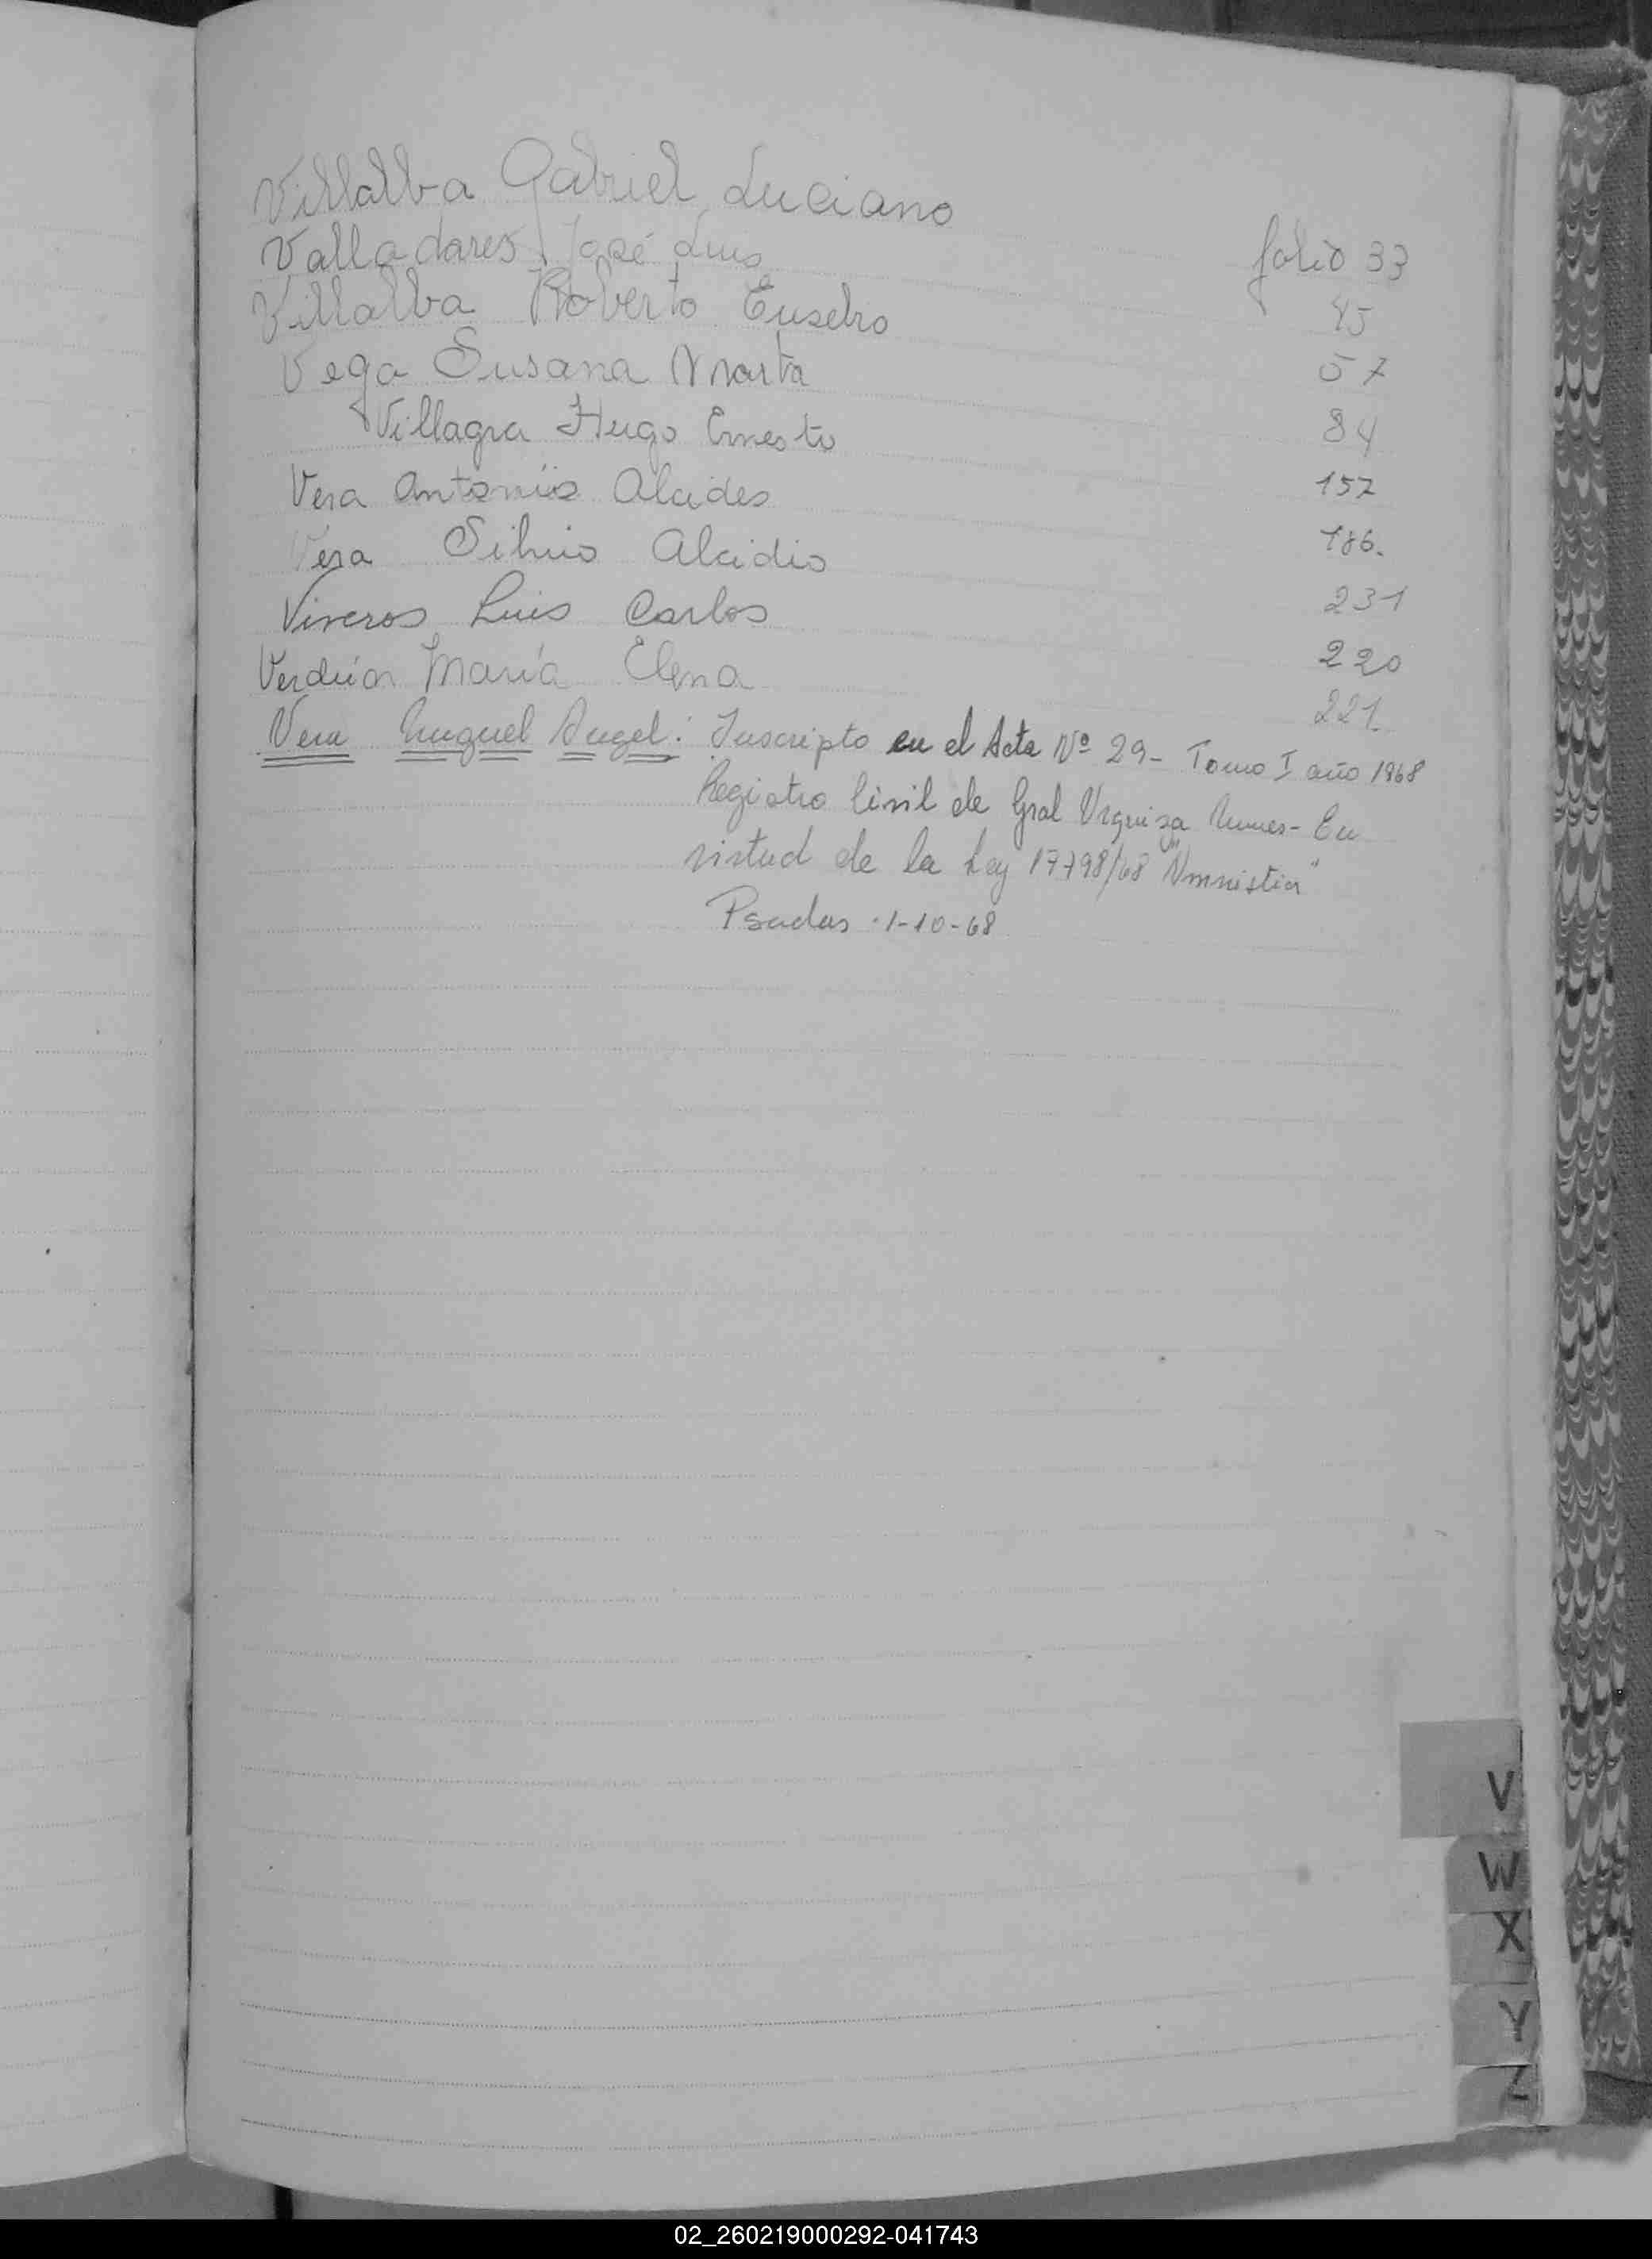 Villalba Gabriel Luciano folio 33
Valladares José Luis 45
Villalba Roberto Eusebio 57
Vega Susana Marta 84
Villagra Hugo Ernesto 157
Vera Antonio Alcides 186.
Vera Silvio Alcidio 231
Viveros Luis Carlos 220
Verdún María Elena 221
Vera Miguel Angel: Inscripto en el Acta Nº 29- Tomo I año 1968
Registro Civil de Gral Urquiza Mnes- En
virtud de la Ley 17798/68 "Amnistia"
Psadas 1-10-68
V
W
X
Y
Z
02_260219000292-041743